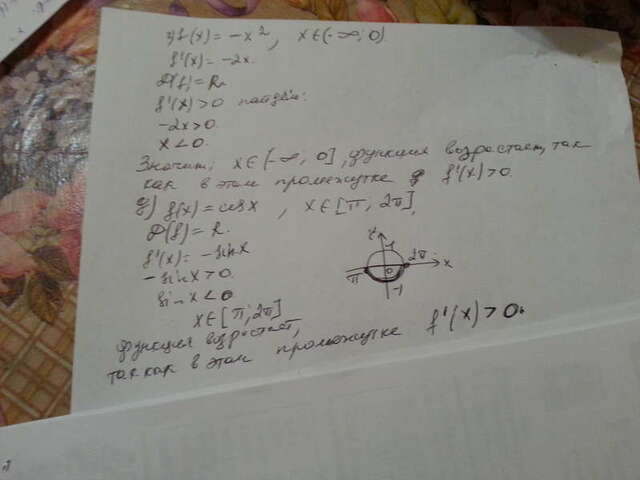 f(x) = -x², x∈(-∞; 0)
f'(x) = -2x.
D(f) = R.
f'(x) > 0 найдём:
-2x > 0.
x < 0.
Значит, x∈(-∞, 0], функция возрастает, так
как в этом промежутке f'(x) > 0.
g) f(x) = cos x, x∈[π; 2π],
D(f) = R.
f'(x) = -sin x
-sin x > 0.
sin x < 0
x∈[π; 2π]
1
2π
π
0
x
-1
функция возрастает,
так как в этом промежутке f'(x) > 0.